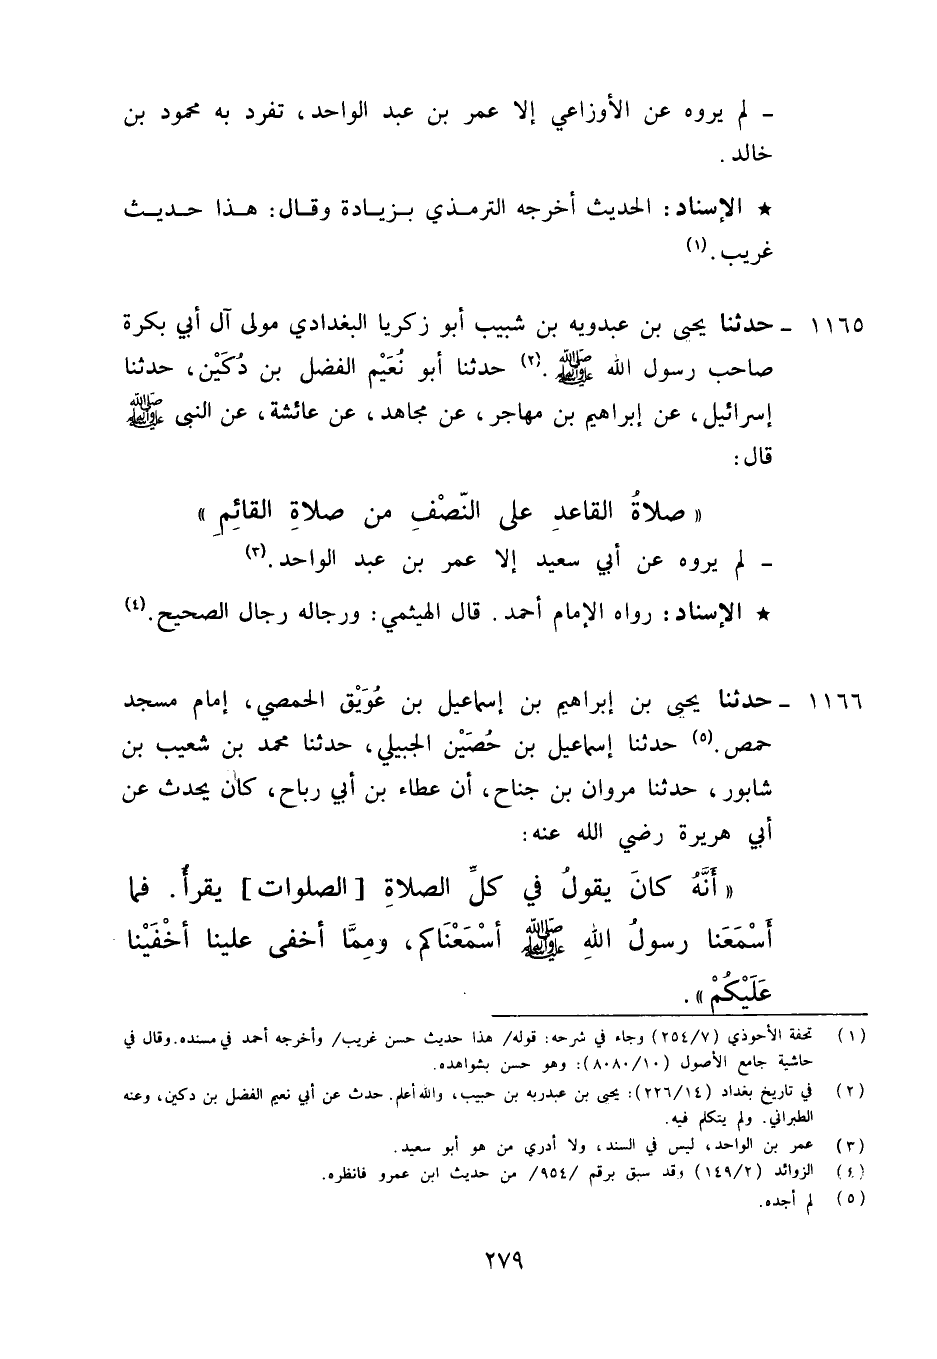 ـ لم يروه عن الأوزاعي إلا عمر بن عبد الواحد، تفرد به محمود بن
خالد.
★ الإسناد: الحديث أخرجه الترمذي بـزيـادة وقـال: هـذا حـديـث
غريب.(١)
١١٦٥ ـ حدثنا يحيى بن عبدويه بن شبيب أبو زكريا البغدادي مولى آل أبي بكرة
صاحب رسول الله ﷺ.(٢) حدثنا أبو نُعَيْم الفضل بن دُكَيْن، حدثنا
إسرائيل، عن إبراهيم بن مهاجر، عن مجاهد، عن عائشة، عن النبي ﷺ
قال:
« صلاةُ القاعدِ على النّصْفِ من صلاةِ القائِمِ »
ـ لم يروه عن أبي سعيد إلا عمر بن عبد الواحد.(٣)
★ الإسناد: رواه الإمام أحمد. قال الهيثمي: ورجاله رجال الصحيح.(٤)
١١٦٦ ـ حدثنا يحيى بن إبراهيم بن إسماعيل بن عُوَيْق الحمصي، إمام مسجد
حمص.(٥) حدثنا إسماعيل بن حُصَيْن الجبيلي، حدثنا محمد بن شعيب بن
شابور، حدثنا مروان بن جناح، أن عطاء بن أبي رباح، كان يحدث عن
أبي هريرة رضي الله عنه:
« أَنَّهُ كانَ يقولُ في كلِّ الصلاةِ [الصلوات] يقرأُ. فما
أَسْمَعَنا رسولُ اللهِ ﷺ أسْمَعْنَاكم، ومِمَّا أخفى علينا أخْفَيْنا
عَلَيْكُمْ ».
(١) تحفة الأحوذي (٢٥٤/٧) وجاء في شرحه: قوله/ هذا حديث حسن غريب/ وأخرجه أحمد في مسنده. وقال في
حاشية جامع الأصول (٨٠٨٠/١٠): وهو حسن بشواهده.
(٢) في تاريخ بغداد (٢٢٦/١٤): يحيى بن عبدربه بن حبيب، والله أعلم. حدث عن أبي نعيم الفضل بن دكين، وعنه
الطبراني. ولم يتكلم فيه.
(٣) عمر بن الواحد، ليس في السند، ولا أدري من هو أبو سعيد.
(٤) الزوائد (١٤٩/٢) وقد سبق برقم /٩٥٤/ من حديث ابن عمرو فانظره.
(٥) لم أجده.
٢٧٩